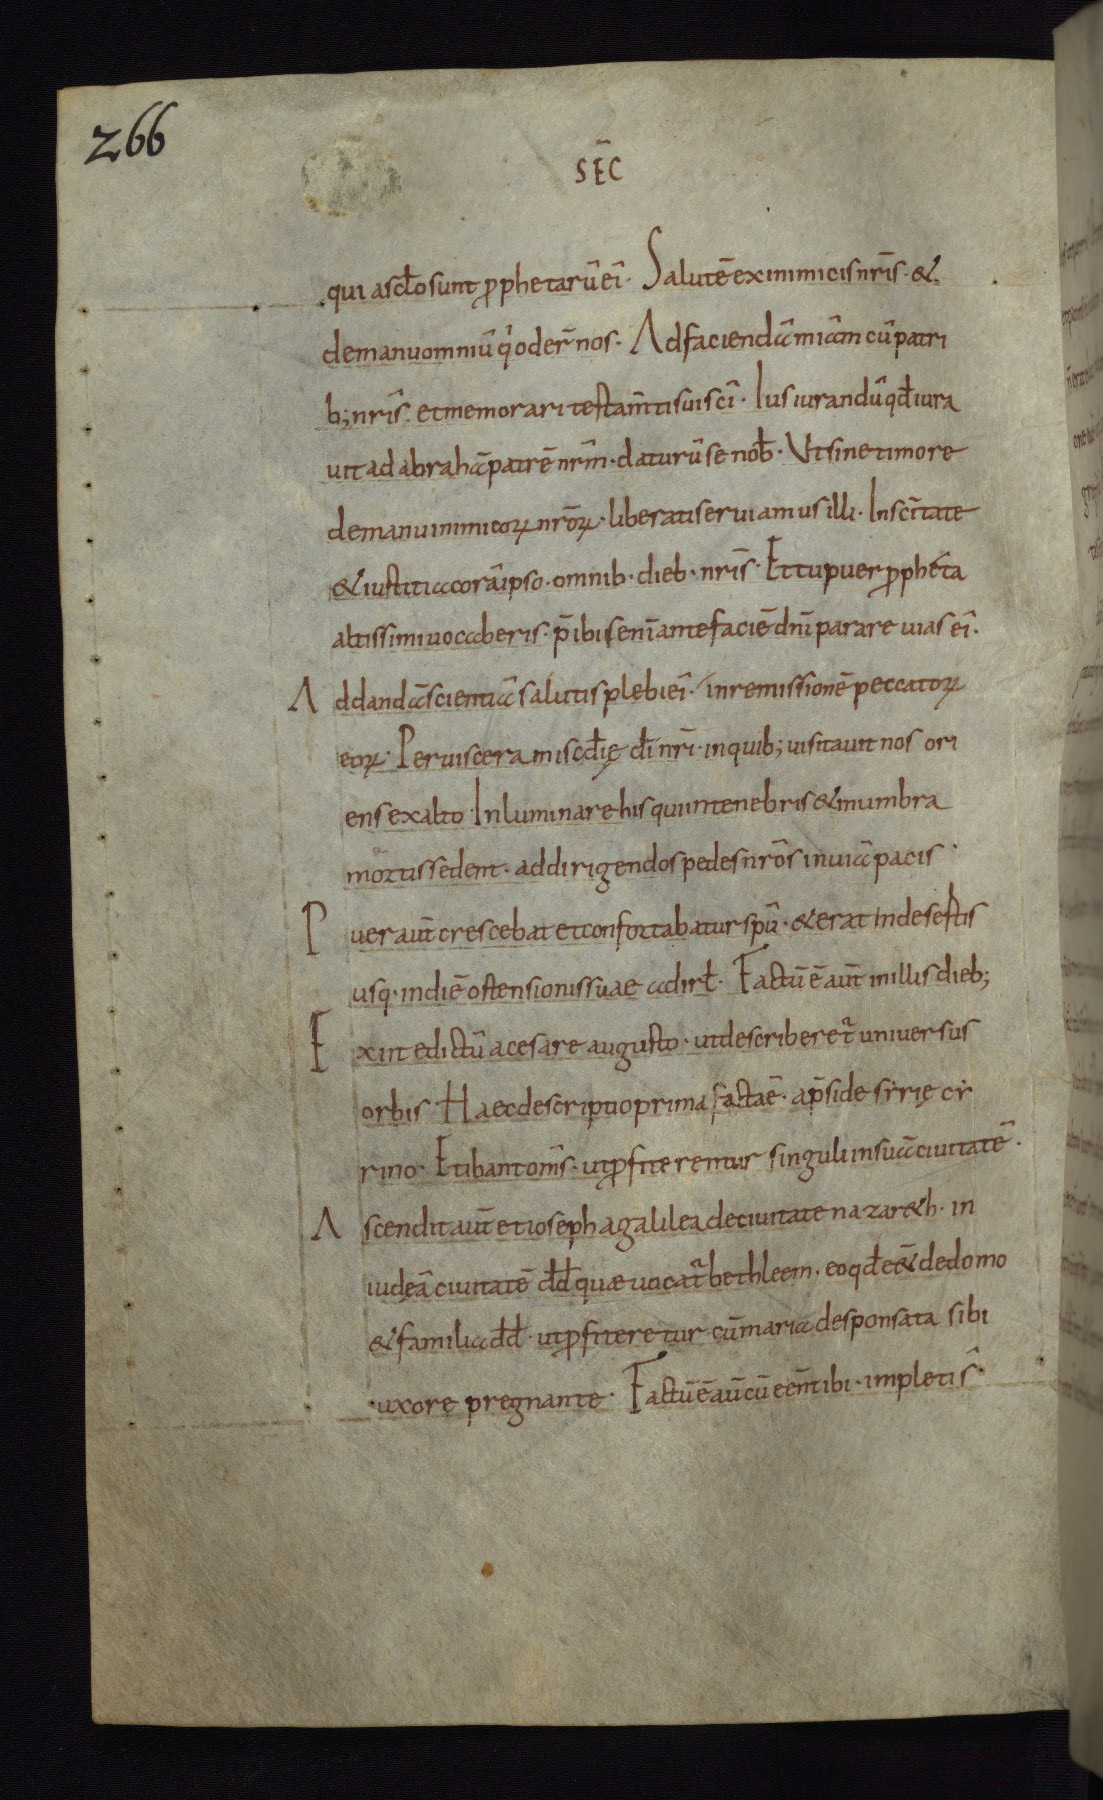 266
SĒC
qui a scło sunt ꝓphetarū eī. Salutē ex inimicis nrīs. &
de manu omniū q̄ oder̄ nos. Ad faciendā miām cū patri
b; nrīs. et memorari testam̄ti sui scī. Ius iurandū qđ iura
uit ad abrahā patrē nr̄m. daturū se nob̄. Ut sine timore
de manu inimicoꝝ nr̄oꝝ. liberati seruiamus illi. In scītate
& iustitia corā ipso. omnib. dieb. nrīs. Et tu puer ꝓpheta
altissimi uocaberis. p̄ibis enī ante faciē dnī parare uias eī.
Ad dandā scientiā salutis plebi eī. in remissionē peccatoꝝ
eoꝝ. Per uiscera miscđię đi nrī. in quib; uisitauit nos ori
ens ex alto. Inluminare his qui in tenebris & in umbra
mortis sedent. ad dirigendos pedes nr̄os in uiā pacis.
Puer aūt crescebat et confortabatur spū. & erat in desertis
usq. in diē ostensionis suae ad irł. Factū ē aūt in illis dieb;
Exiit edictū a cesare augusto. ut describeret̄ uniuersus
orbis. Haec descriptio prima facta ē. a p̄side sẏrię cẏ
rino. Et ibant om̄s. ut ꝓfiterentur singuli in suā ciuitatē.
Ascendit aūt et ioseph a galilea de ciuitate nazar&h. in
iudęā ciuitatē dđ quae uocat̄ bethleem. eo qđ eēt de domo
& familia dđ. ut ꝓfiteretur cū maria desponsata sibi
uxore pregnante. Factū ē aū cū een̄t ibi. impleti s̄.